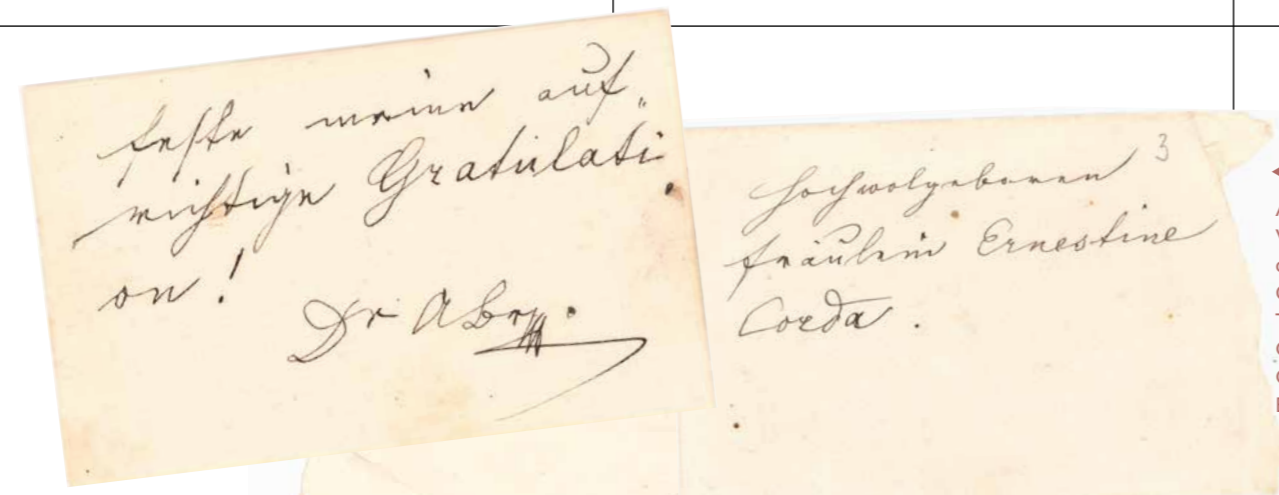 feste meine auf„
richtige Gratulati
on!
Dr A
3
Hochwolgeboren
Fräulein Ernestine
Corda.